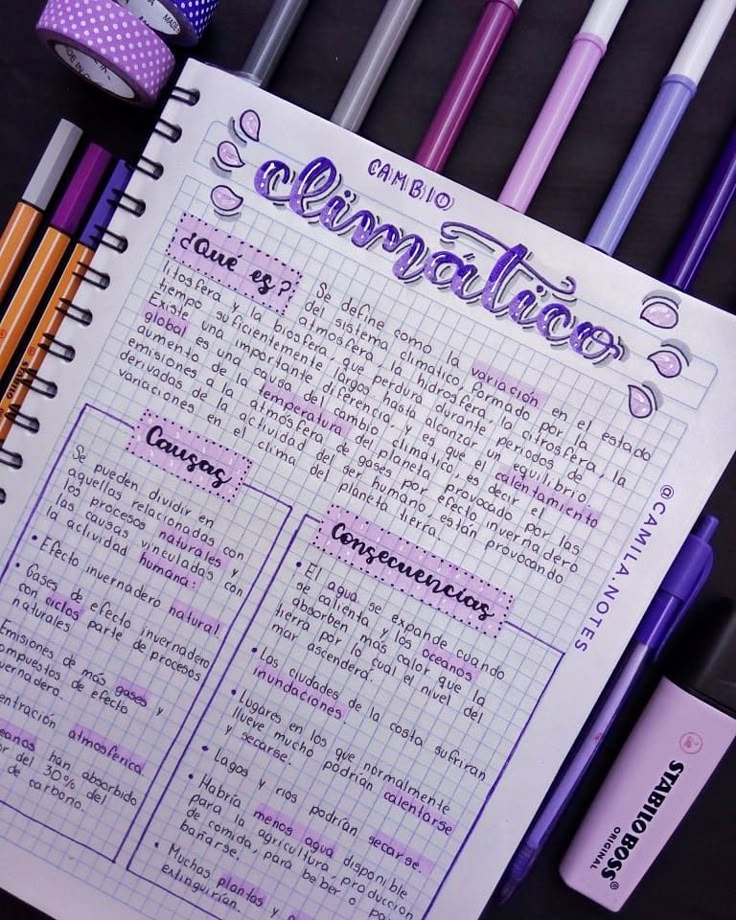 CAMBIO
climático
¿Qué es?
Se define como la variación en el estado
del sistema climatico, formado por la
atmosfera, la hidrosfera, la citrosfera, la
litosfera y la biosfera, que perdura durante periodos de
tiempo suficientemente largos hasta alcanzar un equilibrio.
Existe una importante diferencia, y es que el calentamiento
global es una causa del cambio climatico, es decir el
aumento de la temperatura del planeta, provocado por las
emisiones a la atmósfera de gases por efecto invernadero
derivadas de la actividad del ser humano, están provocando
variaciones en el clima del planeta tierra.
Causas
Se pueden dividir en
aquellas relacionadas con
los procesos naturales y
las causas vinculadas con
la actividad humana:
• Efecto invernadero natural.
• Gases de efecto invernadero
con ciclos parte de procesos
naturales
Emisiones de más gases y
compuestos de efecto
invernadero.
atmosférica
han absorbido
del 30% del
de carbono.
Consecuencias
• El agua se expande cuando
se calienta y los oceanos
absorben más calor que la
tierra por lo cual el nivel del
mar ascenderá.
• Las ciudades de la costa sufriran
inundaciones
• Lugares en los que normalmente
llueve mucho podrían calentarse
y secarse.
• Lagos y rios podrían secarse.
• Habría menos agua disponible
para la agricultura, producción
de comida, para beber o para
bañarse.
• Muchas plantas y
extinguirían.
@CAMILA.NOTES
STABILO BOSS
ORIGINAL